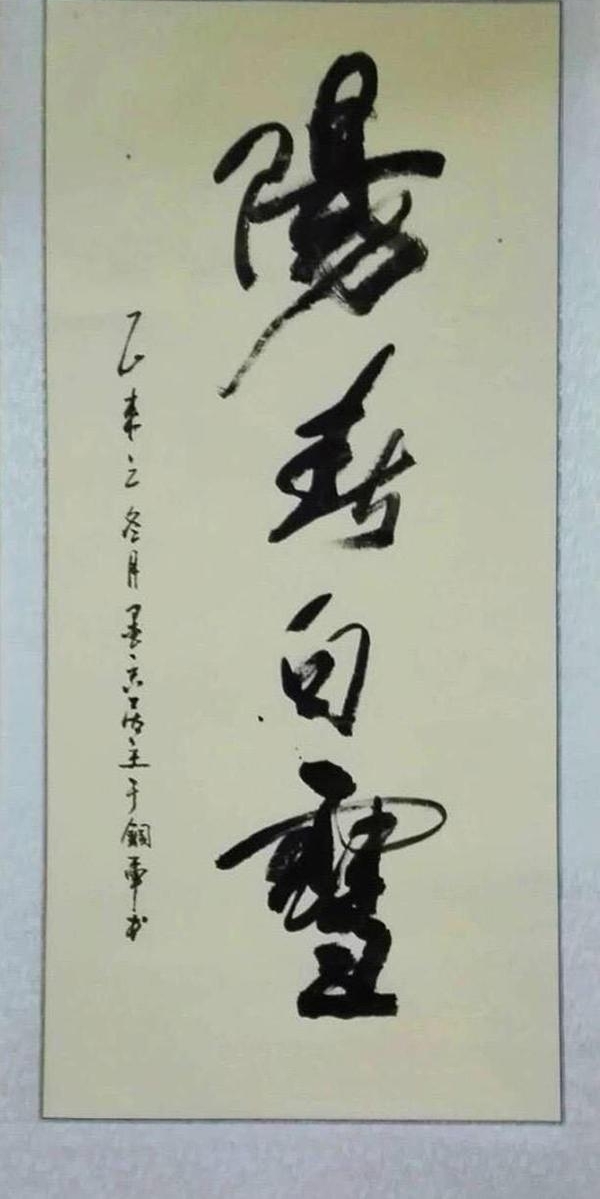 陽春白雪
乙未之冬月墨
主于鋼軍書